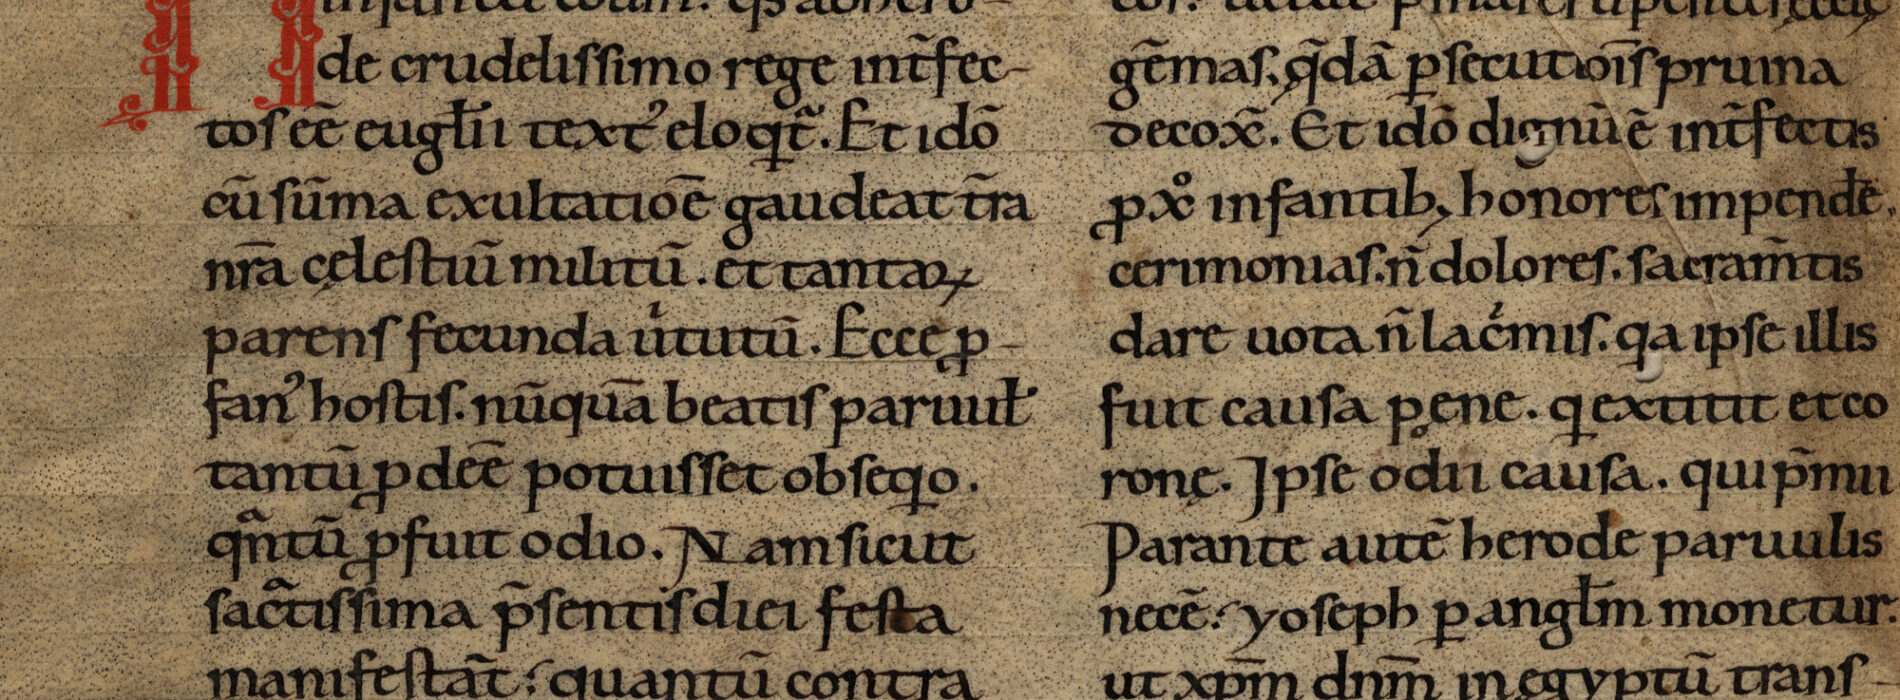 infantū
de crudelissimo rege int̄fec-
tos eē eugl̄ii text᾿ eloqt̄. Et idō
cū sūma exultatioē gaudeat t̄ra
nr̄a cęlestiū militū. et tantaꝝ
parens fecunda uͥtutū. Ecce ꝓ-
fan᾿ hostis. nūquā beatis paruul̄
tantū ꝓdeē potuisset obseqͥo.
qn̄tū ꝓfuit odio. Nam sicut
sac̄tissima p̄sentis diei festa
manifestat̄: quantū contra
gēmas. q̄dā ꝑsecutiōis pruina
decoxͭ. Et idō dignū ē int̄fectis
ꝓ xͦ infantib; honores impendē.
cerimonias. n̄ dolores. sacram̄tis
dare uota n̄ lacͥmis. qa ipse illis
fuit causa pęne. qͥ extitit et co
ronę. Ipse odii causa. qui p̄mii
Parante autē herode paruulis
necē: yoseph ꝑ angl̄m monetur.
ut xp̄m dnm̄ in egyptū trans-